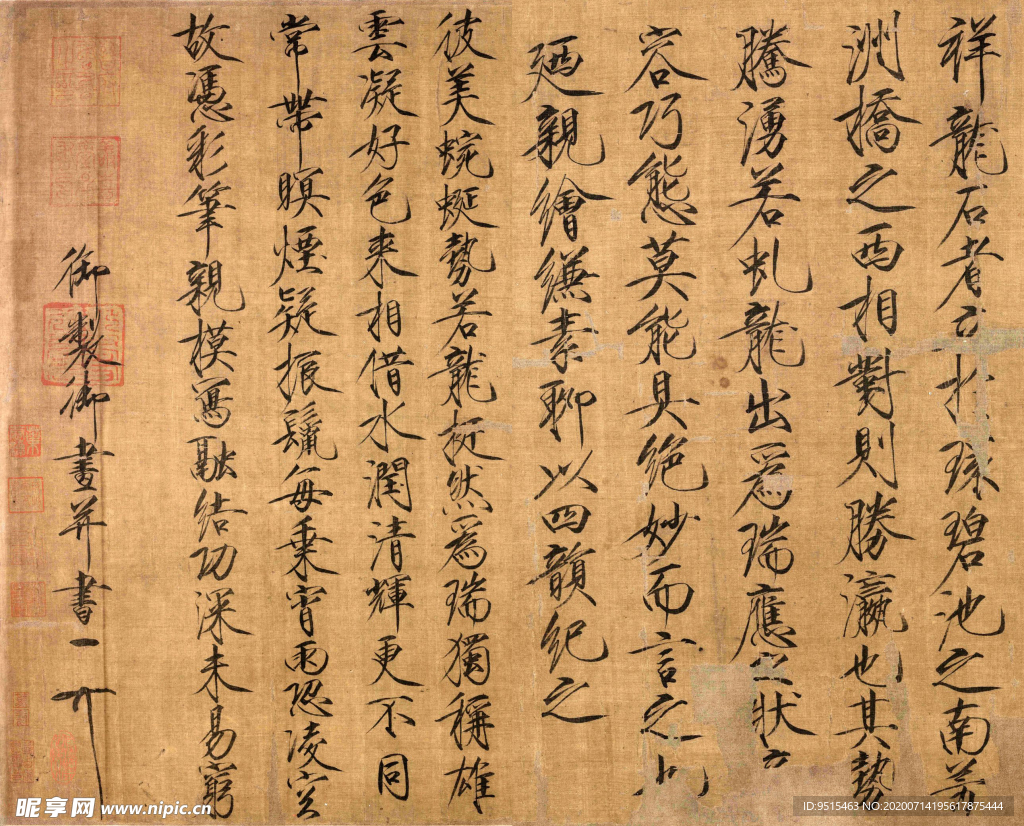 祥龍石者立於環碧池之南芳
洲橋之西相對則勝瀛也其勢
騰湧若虬龍出為瑞應之狀奇
容巧態莫能具絕妙而言之也
廼親繪縑素聊以四韻紀之
彼美蜿蜒勢若龍挺然為瑞獨稱雄
雲凝好色來相借水潤清輝更不同
常帶暝煙疑振鬣每乘宵雨恐凌空
故憑彩筆親模寫融結功深未易窮
御製御畫并書
昵享网 www.nipic.cn
ID:9515463 NO:20200714195617875444